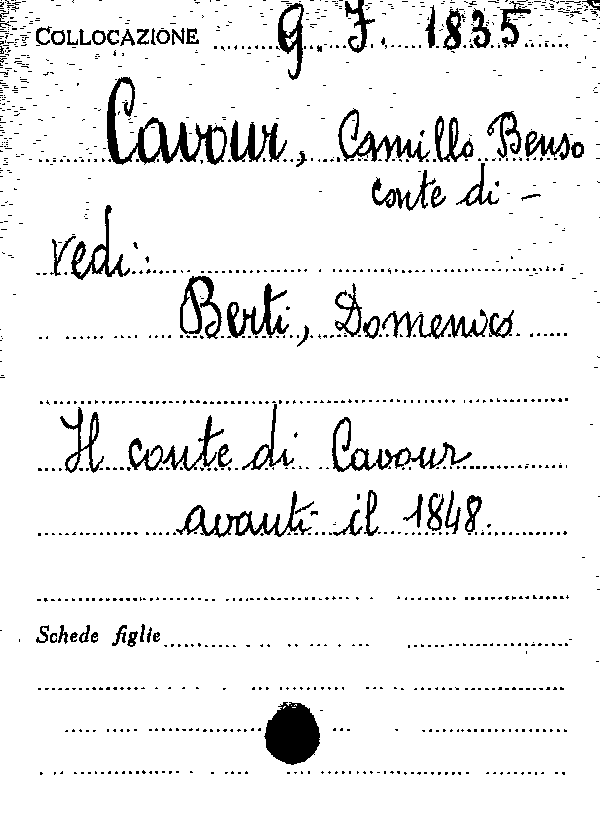 COLLOCAZIONE G. J. 1835
Cavour, Camillo Benso
conte di -
vedi:
Berti, Domenico
Il conte di Cavour
avanti il 1848.
Schede figlie